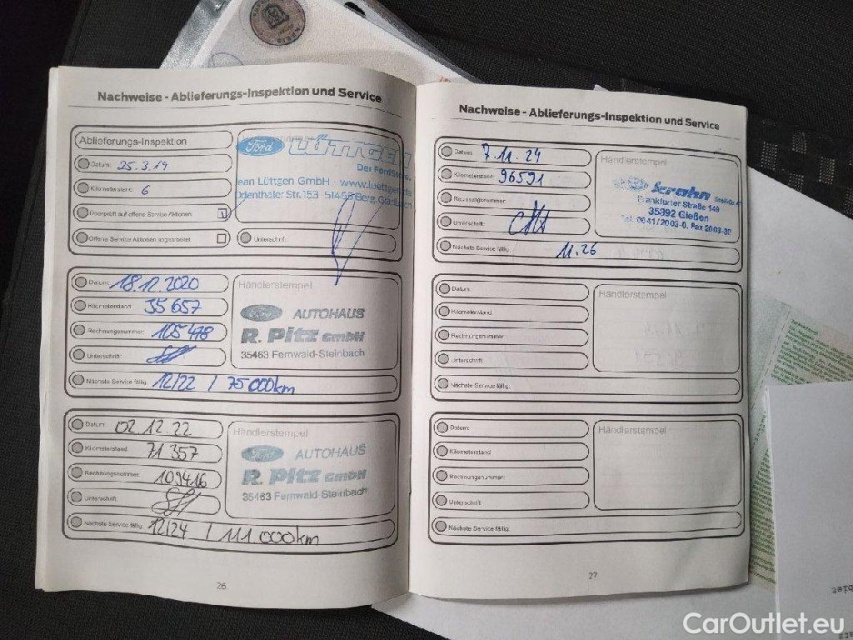 Nachweise - Ablieferungs-Inspektion und Service
Ablieferungs-Inspektion
Datum: 25.3.19
Kilometerstand: 6
Überprüft auf offene Service Aktionen:
Offene Service Aktionen abgearbeitet
Unterschrift:
Ford LÜTTGEN
Der Ford
ean Lüttgen GmbH · www.luettgen
denthaler Str. 153 · 51465 Berg. Gladb
Datum: 18.12.2020
Kilometerstand: 35 657
Rechnungsnummer: 105 478
Unterschrift:
Nächste Service fällig: 12/22 / 75 000km
Händlerstempel
Ford AUTOHAUS
R. Pitz GmbH
35463 Fernwald-Steinbach
Datum: 02.12.22
Kilometerstand: 71 357
Rechnungsnummer: 109416
Unterschrift:
Nächste Service fällig: 12/24 / 111 000km
Händlerstempel
Ford AUTOHAUS
R. Pitz GmbH
35463 Fernwald-Steinbach
26
Nachweise - Ablieferungs-Inspektion und Service
Datum: 7.11.24
Kilometerstand: 96591
Rechnungsnummer:
Unterschrift:
Nächste Service fällig: 11.26
Händlerstempel
Krahn
Frankfurter Straße 149
35392 Gießen
Datum:
Kilometerstand:
Rechnungsnummer:
Unterschrift:
Nächste Service fällig:
Händlerstempel
Datum:
Kilometerstand:
Rechnungsnummer:
Unterschrift:
Nächste Service fällig:
Händlerstempel
27
CarOutlet.eu